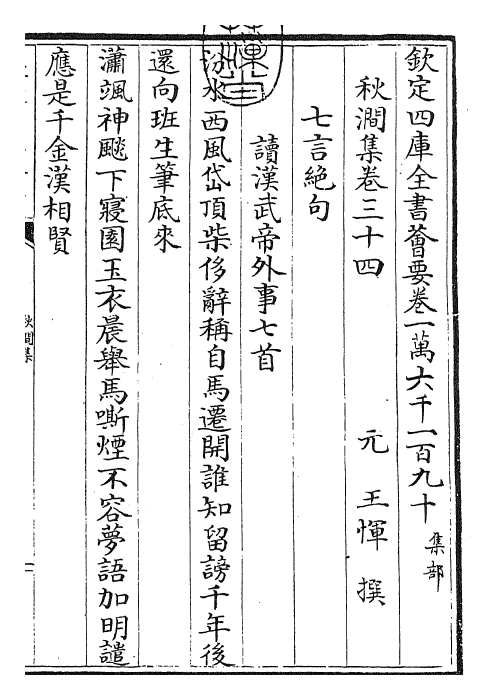 欽定四庫全書薈要卷一萬六千一百九十 集部
秋澗集卷三十四 元 王惲 撰
七言絶句
讀漢武帝外事七首
汾水西風岱頂柴侈辭稱自馬遷開誰知留謗千年後
還向班生筆底來
瀟颯神飈下寢園玉衣晨舉馬嘶煙不容夢語加明譴
應是千金漢相賢
秋澗集